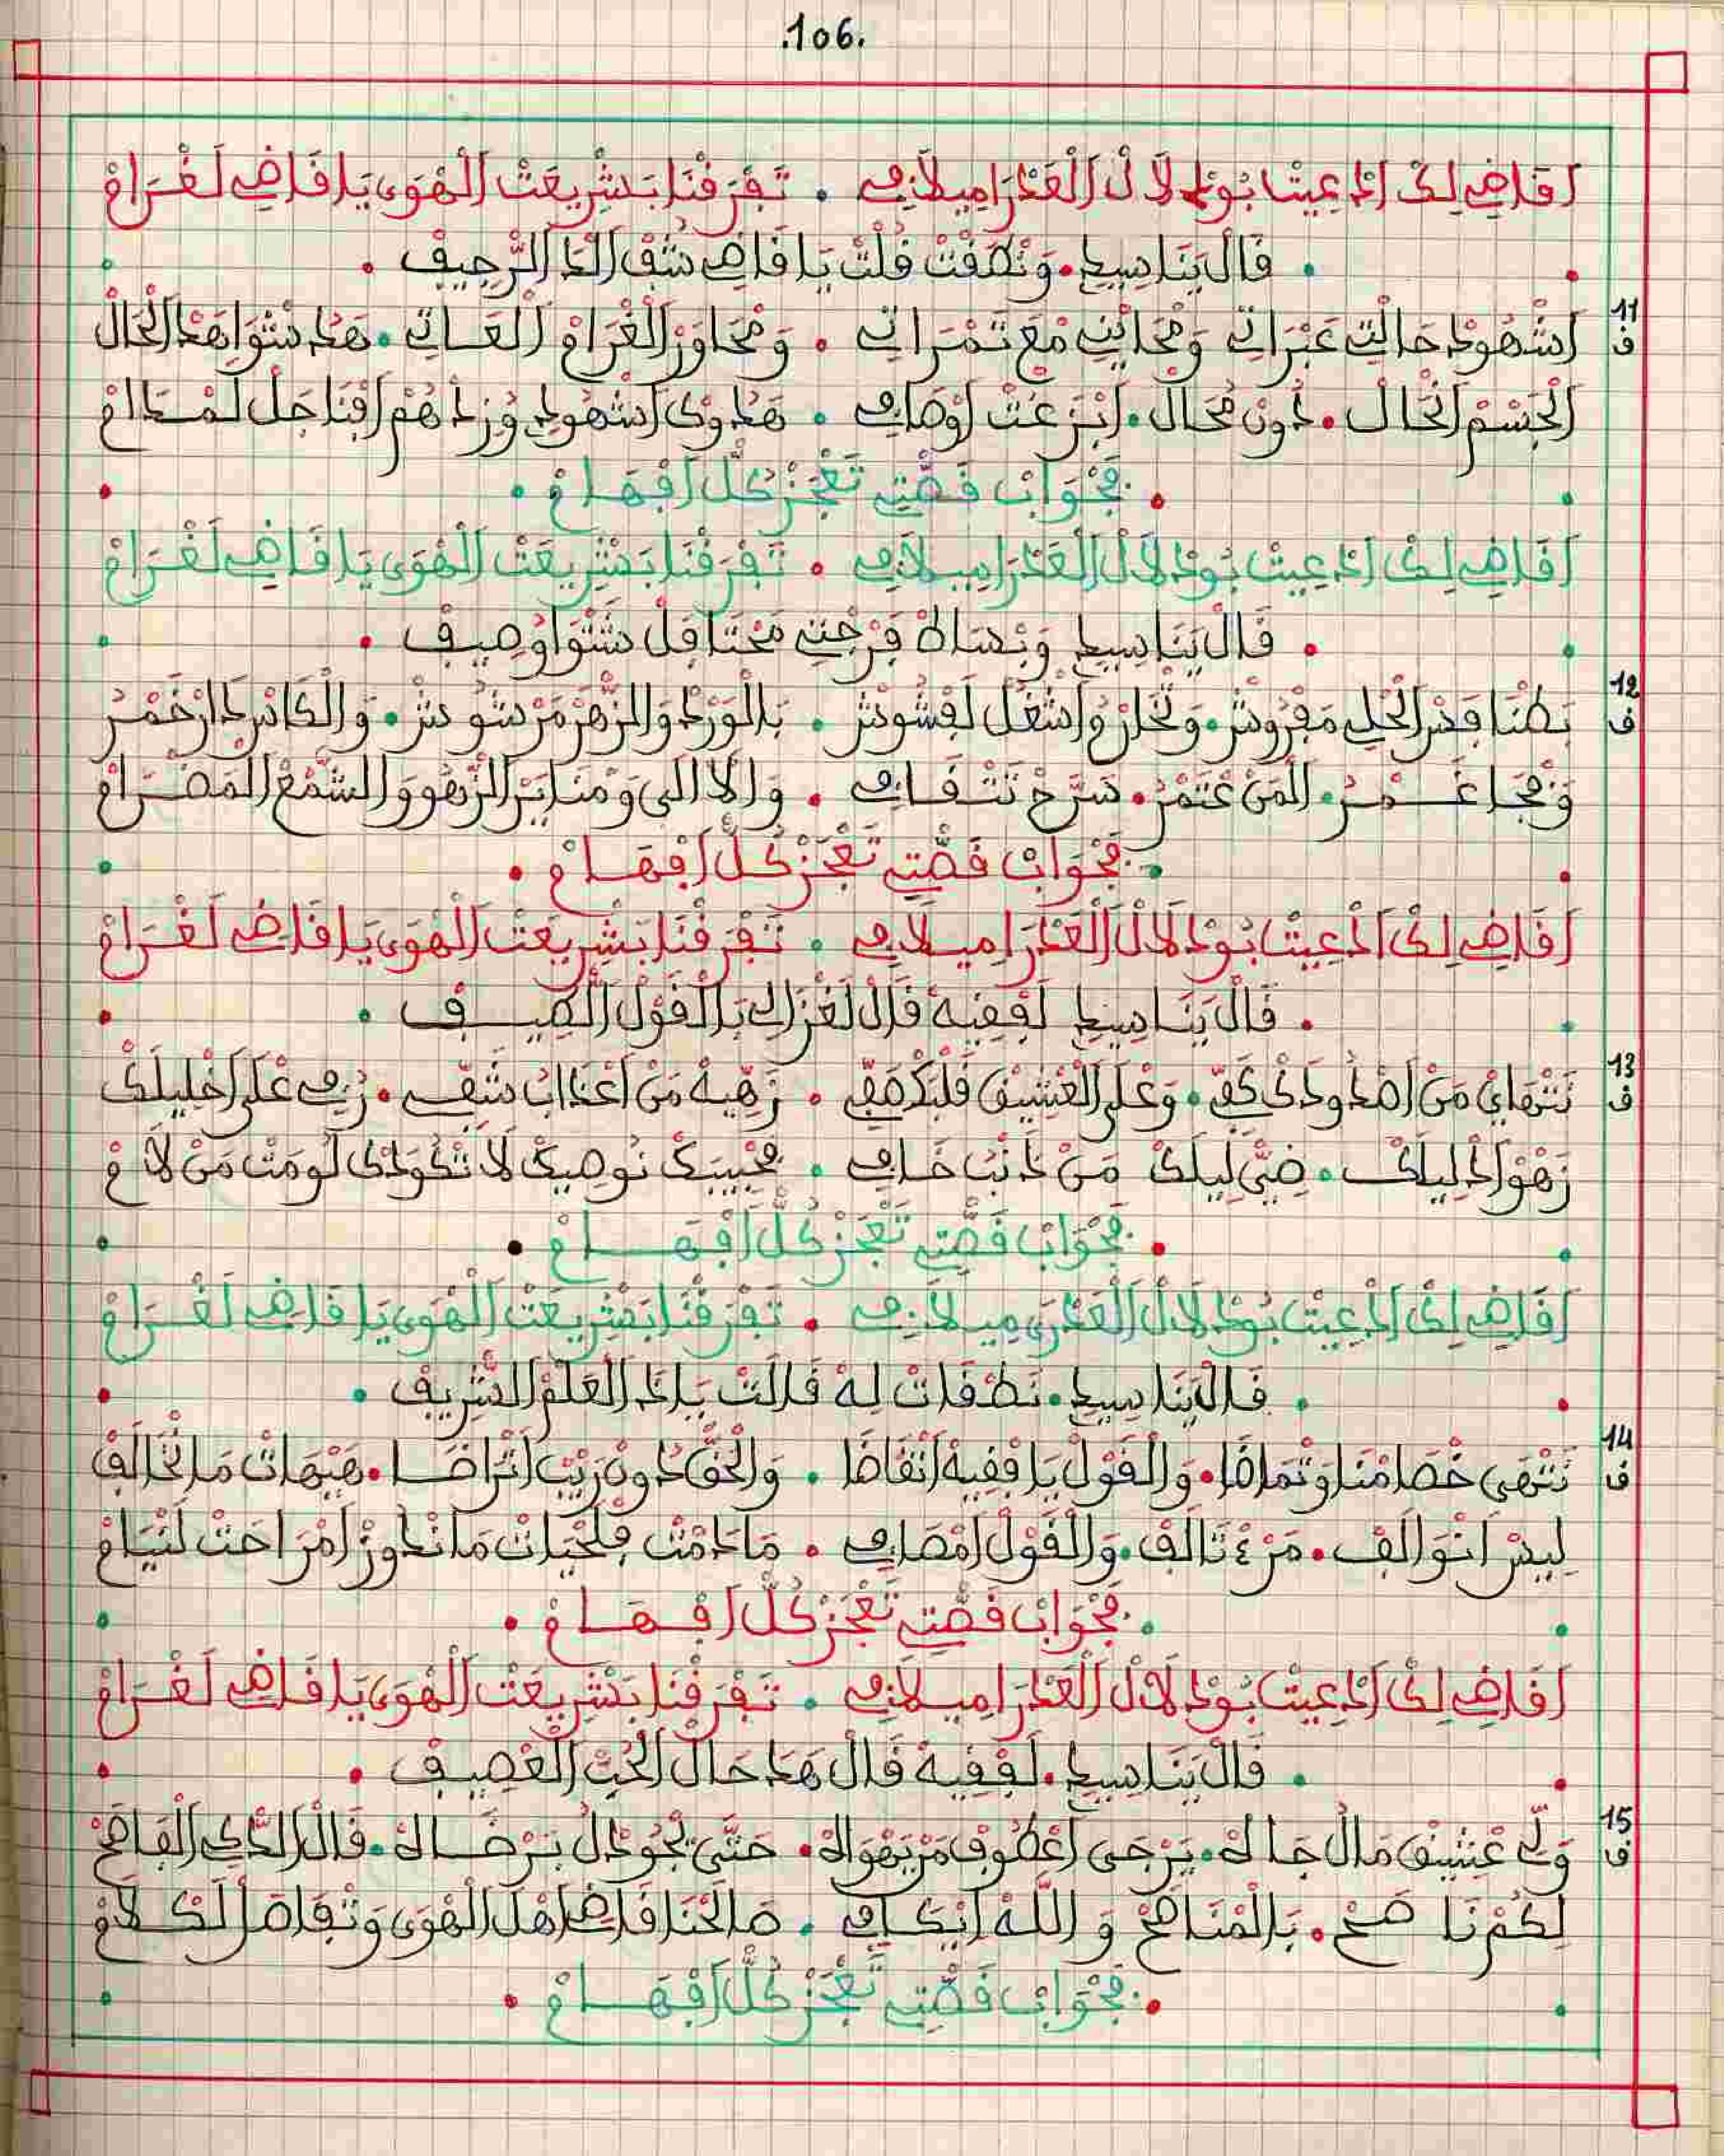 .106.
أقاضي لك ادعيت بودلال العدرا ميلافي . تفرقنا بشريعت الهوى يا قاضي لغرام
. قال يناسيط . ونطقت قلت يا قاضي شف الدا الرجيف .
11 ف
اشهود حالتي عبراتي ومحاينتي مع تمراتي . ومحاور الغرام العاتي . هدا شواهد الحال
الجسم انحال . دون محال . ابزعت اوصافي . هدوك اشهود وزدهم افناجل لسطام
. بجواب قصتي تعجز كل افهام .
أقاضي لك ادعيت بودلال العدرا ميلافي . تفرقنا بشريعت الهوى يا قاضي لغرام
. قال يناسيط وبساط فرجتي محتافل شتوا وصيف .
12 ف
بطنافس الحلي مفروش . وتخار واشغل لفشوش . بالورد والزهر مرشوش . والكاس دار خمر
ونجا غمر . المن عتمر . سرح نتفافي . والالى ومنابر الزهو والشمع المضرام
. بجواب قصتي تعجز كل افهام .
أقاضي لك ادعيت بودلال العدرا ميلافي . تفرقنا بشريعت الهوى يا قاضي لغرام
. قال يناسيط لفقيه قال لغزالي بالقول الصيف .
13 ف
نتهاي من اصدودك كفي . وعلى العشيق قلبك صفي . زهيه من اعداب شفي . زيدي على اخليلك
زهو ادليلك . ضي ليلك من دنب خافي . محبيبك نوصيك لا تكودك لومت من لام
. بجواب قصتي تعجز كل افهام .
أقاضي لك ادعيت بودلال العدرى ميلافي . تفرقنا بشريعت الهوى يا قاضي لغرام
. قال يناسيط . نطقات له قالت يا دا العلم الشريف .
14 ف
نتهى خصامنا وتماضا . والقول يا فقيه انقاضا . والحق دون ريب اتراضا . هيهات ما نخالف
ليس انوالف . من تالف . والقول امضافي . ما دمت فلحيات ما ندوز امراحت لنيام
. بجواب قصتي تعجز كل افهام .
أقاضي لك ادعيت بودلال العدرا ميلافي . تفرقنا بشريعت الهوى يا قاضي لغرام
. قال يناسيط . لفقيه قال هدا حال الحب العصيف .
15 ف
ولي عشيق مال جا له . يرجى اعطوف من يهواله . حتى يجود ل برضاله . قال الدكي الفاصح
لكم نا صح . بالمناصح و الله ايكافي . صالحنا قاضي اهل الهوى وتفاصل لكلام
. بجواب قصتي تعجز كل افهام .